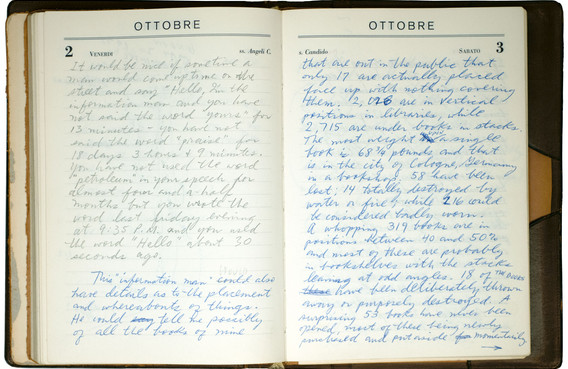 OTTOBRE
2 VENERDI ss. Angeli C.
It would be nice if sometime a
man would come up to me on the
street and say "Hello, I'm the
information man and you have
not said the word "yours" for
13 minutes - you have not
said the word "praise" for
18 days 3 hours + 9 minutes.
You have not used the word
"petroleum" in your speech for
almost four and a half
months but you wrote the
word last friday evening
at 9:35 P.M. and you said
the word "Hello" about 30
seconds ago.
This "information man" could also
have details as to the placement
and whereabouts of things.
He could say tell me possibly
of all the books of mine
OTTOBRE
s. Candido SABATO 3
that are out in the public that
only 17 are actually placed
face up with nothing covering
them. 2,026 are in vertical
positions in libraries, while
2,715 are under books in stacks.
The most weight on a single
book is 68 3/4 pounds and that
is in the city of Cologne, Germany
in a bookshop. 58 have been
lost; 14 totally destroyed by
water or fire, while 216 could
be considered badly worn.
A whopping 319 books are in
positions between 40 and 50%
and most of these are probably
in bookshelves with the stacks
leaning at odd angles. 18 of THE BOOKS
these have been deliberately thrown
away or purposely destroyed. A
surprising 53 books have never been
opened, most of these being newly
purchased and put aside for momentarily
→